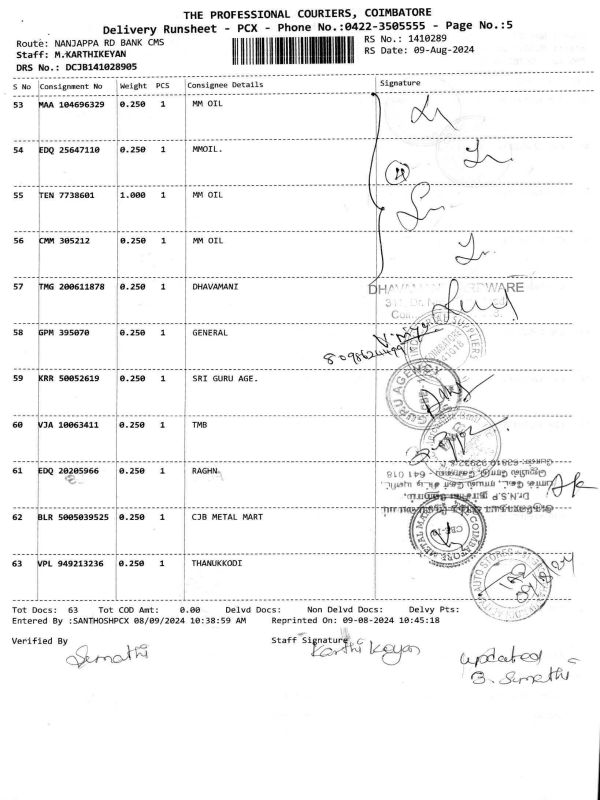 THE PROFESSIONAL COURIERS, COIMBATORE
Delivery Runsheet - PCX - Phone No.:0422-3505555 - Page No.:5
Route: NANJAPPA RD BANK CMS RS No.: 1410289
Staff: M.KARTHIKEYAN RS Date: 09-Aug-2024
DRS No.: DCJB141028905
S No Consignment No Weight PCS Consignee Details Signature
53 MAA 104696329 0.250 1 MM OIL
54 EDQ 25647110 0.250 1 MMOIL.
4
55 TEN 7738601 1.000 1 MM OIL
56 CMM 305212 0.250 1 MM OIL
57 TMG 200611878 0.250 1 DHAVAMANI
58 GPM 395070 0.250 1 GENERAL
59 KRR 50052619 0.250 1 SRI GURU AGE.
GURU AGENCY
60 VJA 10063411 0.250 1 TMB
61 EDQ 20205966 0.250 1 RAGHN
62 BLR 5005039525 0.250 1 CJB METAL MART
COIMBATORE METAL MART
63 VPL 949213236 0.250 1 THANUKKODI
AUTO STORES
Tot Docs: 63 Tot COD Amt: 0.00 Delvd Docs: Non Delvd Docs: Delvy Pts:
Entered By :SANTHOSHPCX 08/09/2024 10:38:59 AM Reprinted On: 09-08-2024 10:45:18
Verified By Staff Signature
Sumathi Karthikeyan updated
B. Sumathi